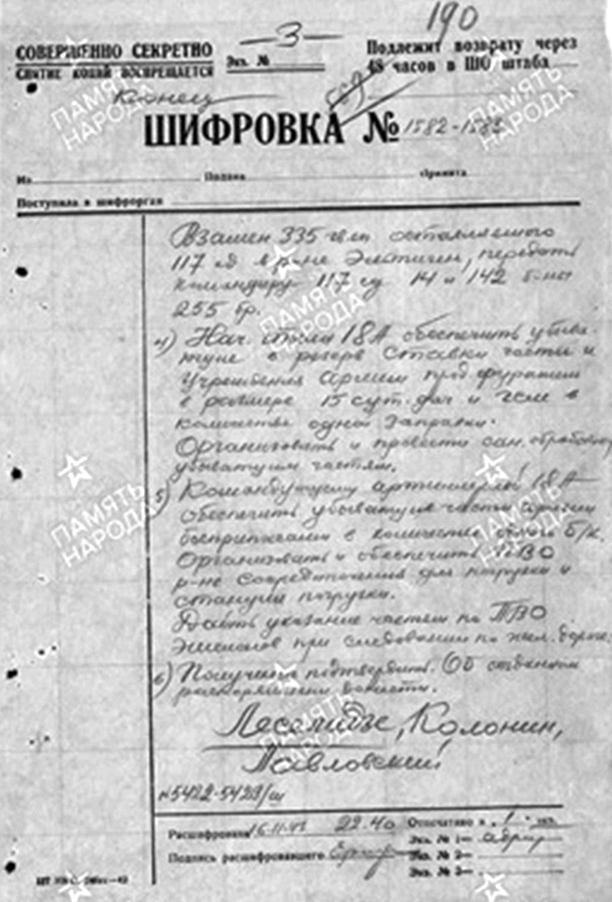 190
СОВЕРШЕННО СЕКРЕТНО
Экз. № 3
Подлежит возврату через
СНЯТИЕ КОПИЙ ВОСПРЕЩАЕТСЯ
48 часов в ШО штаба
Конец
ШИФРОВКА № 1582-1583
Из Подана Принята
Поступила в шифрорган
Взамен 335 оставляемого
117 сд в р-не Эльтиген, передать
командиру 117 сд 14 и 142 б-ны
255 бр.
4) Нач. тыла 18А обеспечить убыва-
ющие в резерв Ставки части и
Учреждения Армии прод. фуражом
в размере 15 сут. дач и гсм в
количестве одной заправки.
Организовать и провести сан. обработку
убывающим частям.
5) Командующему артиллерией 18А
обеспечить убывающие части армии
боеприпасами в количестве одного б/к.
Организовать и обеспечить ПВО
р-не сосредоточения для погрузки и
станции погрузки.
Дать указание частям по ПВО
эшелонов при следовании по жел. дороге.
6) Получение подтвердить. Об отданном
распоряжении донести.
Леселидзе, Колонин,
Павловский
№5422-5423/ш
Расшифрована 16.11.43 22.40 Отпечатано в 1 экз.
Подпись расшифровавшего
Экз. № 1— адрес
Экз. № 2—
Экз. № 3—
ПАМЯТЬ НАРОДА
ПАМЯТЬ НАРОДА
ПАМЯТЬ НАРОДА
ПАМЯТЬ НАРОДА
ПАМЯТЬ НАРОДА
ПАМЯТЬ НАРОДА